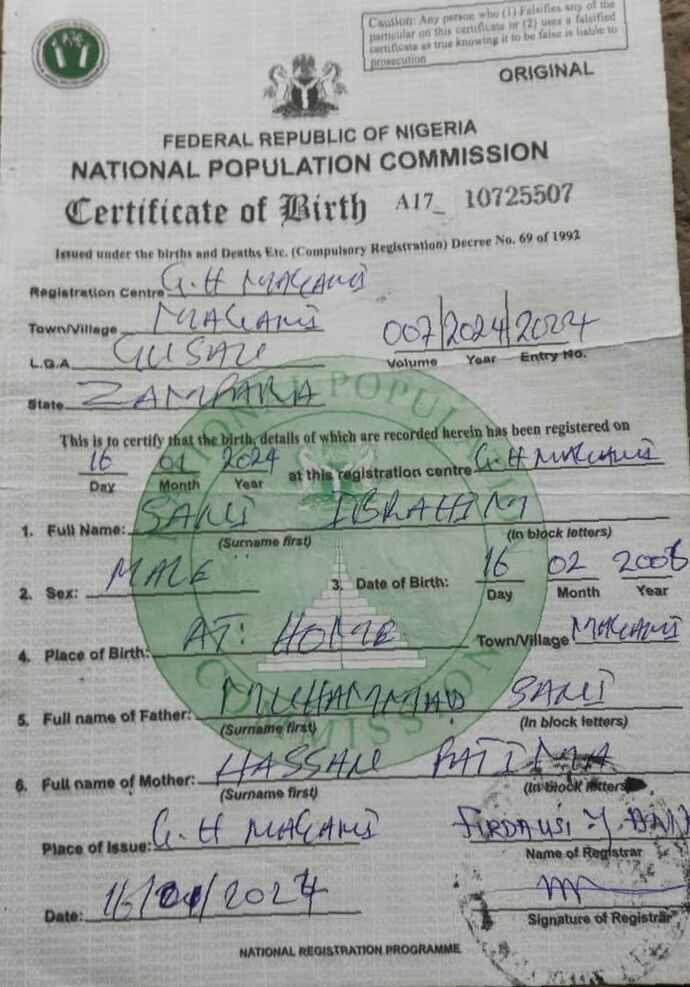 Caution: Any person who (1) Falsifies any of the
particular on this certificate or (2) uses a falsified
certificate as true knowing it to be false is liable to
prosecution
ORIGINAL
FEDERAL REPUBLIC OF NIGERIA
NATIONAL POPULATION COMMISSION
Certificate of Birth A17_ 10725507
Issued under the births and Deaths Etc. (Compulsory Registration) Decree No. 69 of 1992
Registration Centre G.H MAGAMI
Town/Village MAGAMI
007/2024/2024
Volume Year Entry No.
L.G.A GUSAU
State ZAMFARA
This is to certify that the birth, details of which are recorded herein has been registered on
16 01 2024 at this registration centre G.H MAGAMI
Day Month Year
1. Full Name: SANI IBRAHIM
(Surname first) (In block letters)
2. Sex: MALE 3. Date of Birth: 16 02 2006
Day Month Year
4. Place of Birth: AT: HOME Town/Village MAGAMI
5. Full name of Father: MUHAMMAD SANI
(Surname first) (In block letters)
6. Full name of Mother: HASSAN FATIMA
(Surname first) (In block letters)
Place of Issue: G.H MAGAMI FIRDAUSI Y.
Name of Registrar
Date: 16/01/2024
Signature of Registrar
NATIONAL REGISTRATION PROGRAMME